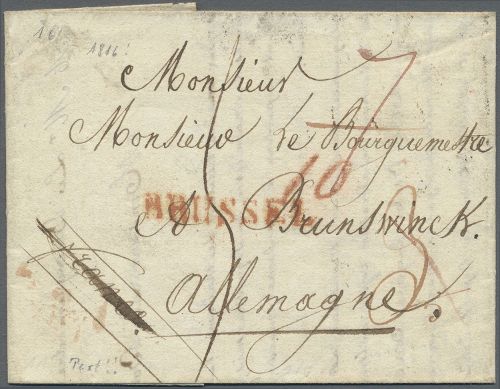 1816!
Monsieur
Monsieur Le Bourguemestre
7
10
BRUSSEL
A Brunswinck.
Allemagne.
franco.